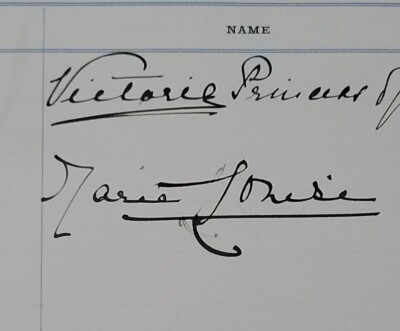 NAME
Victoria Princess of
Marie Louise